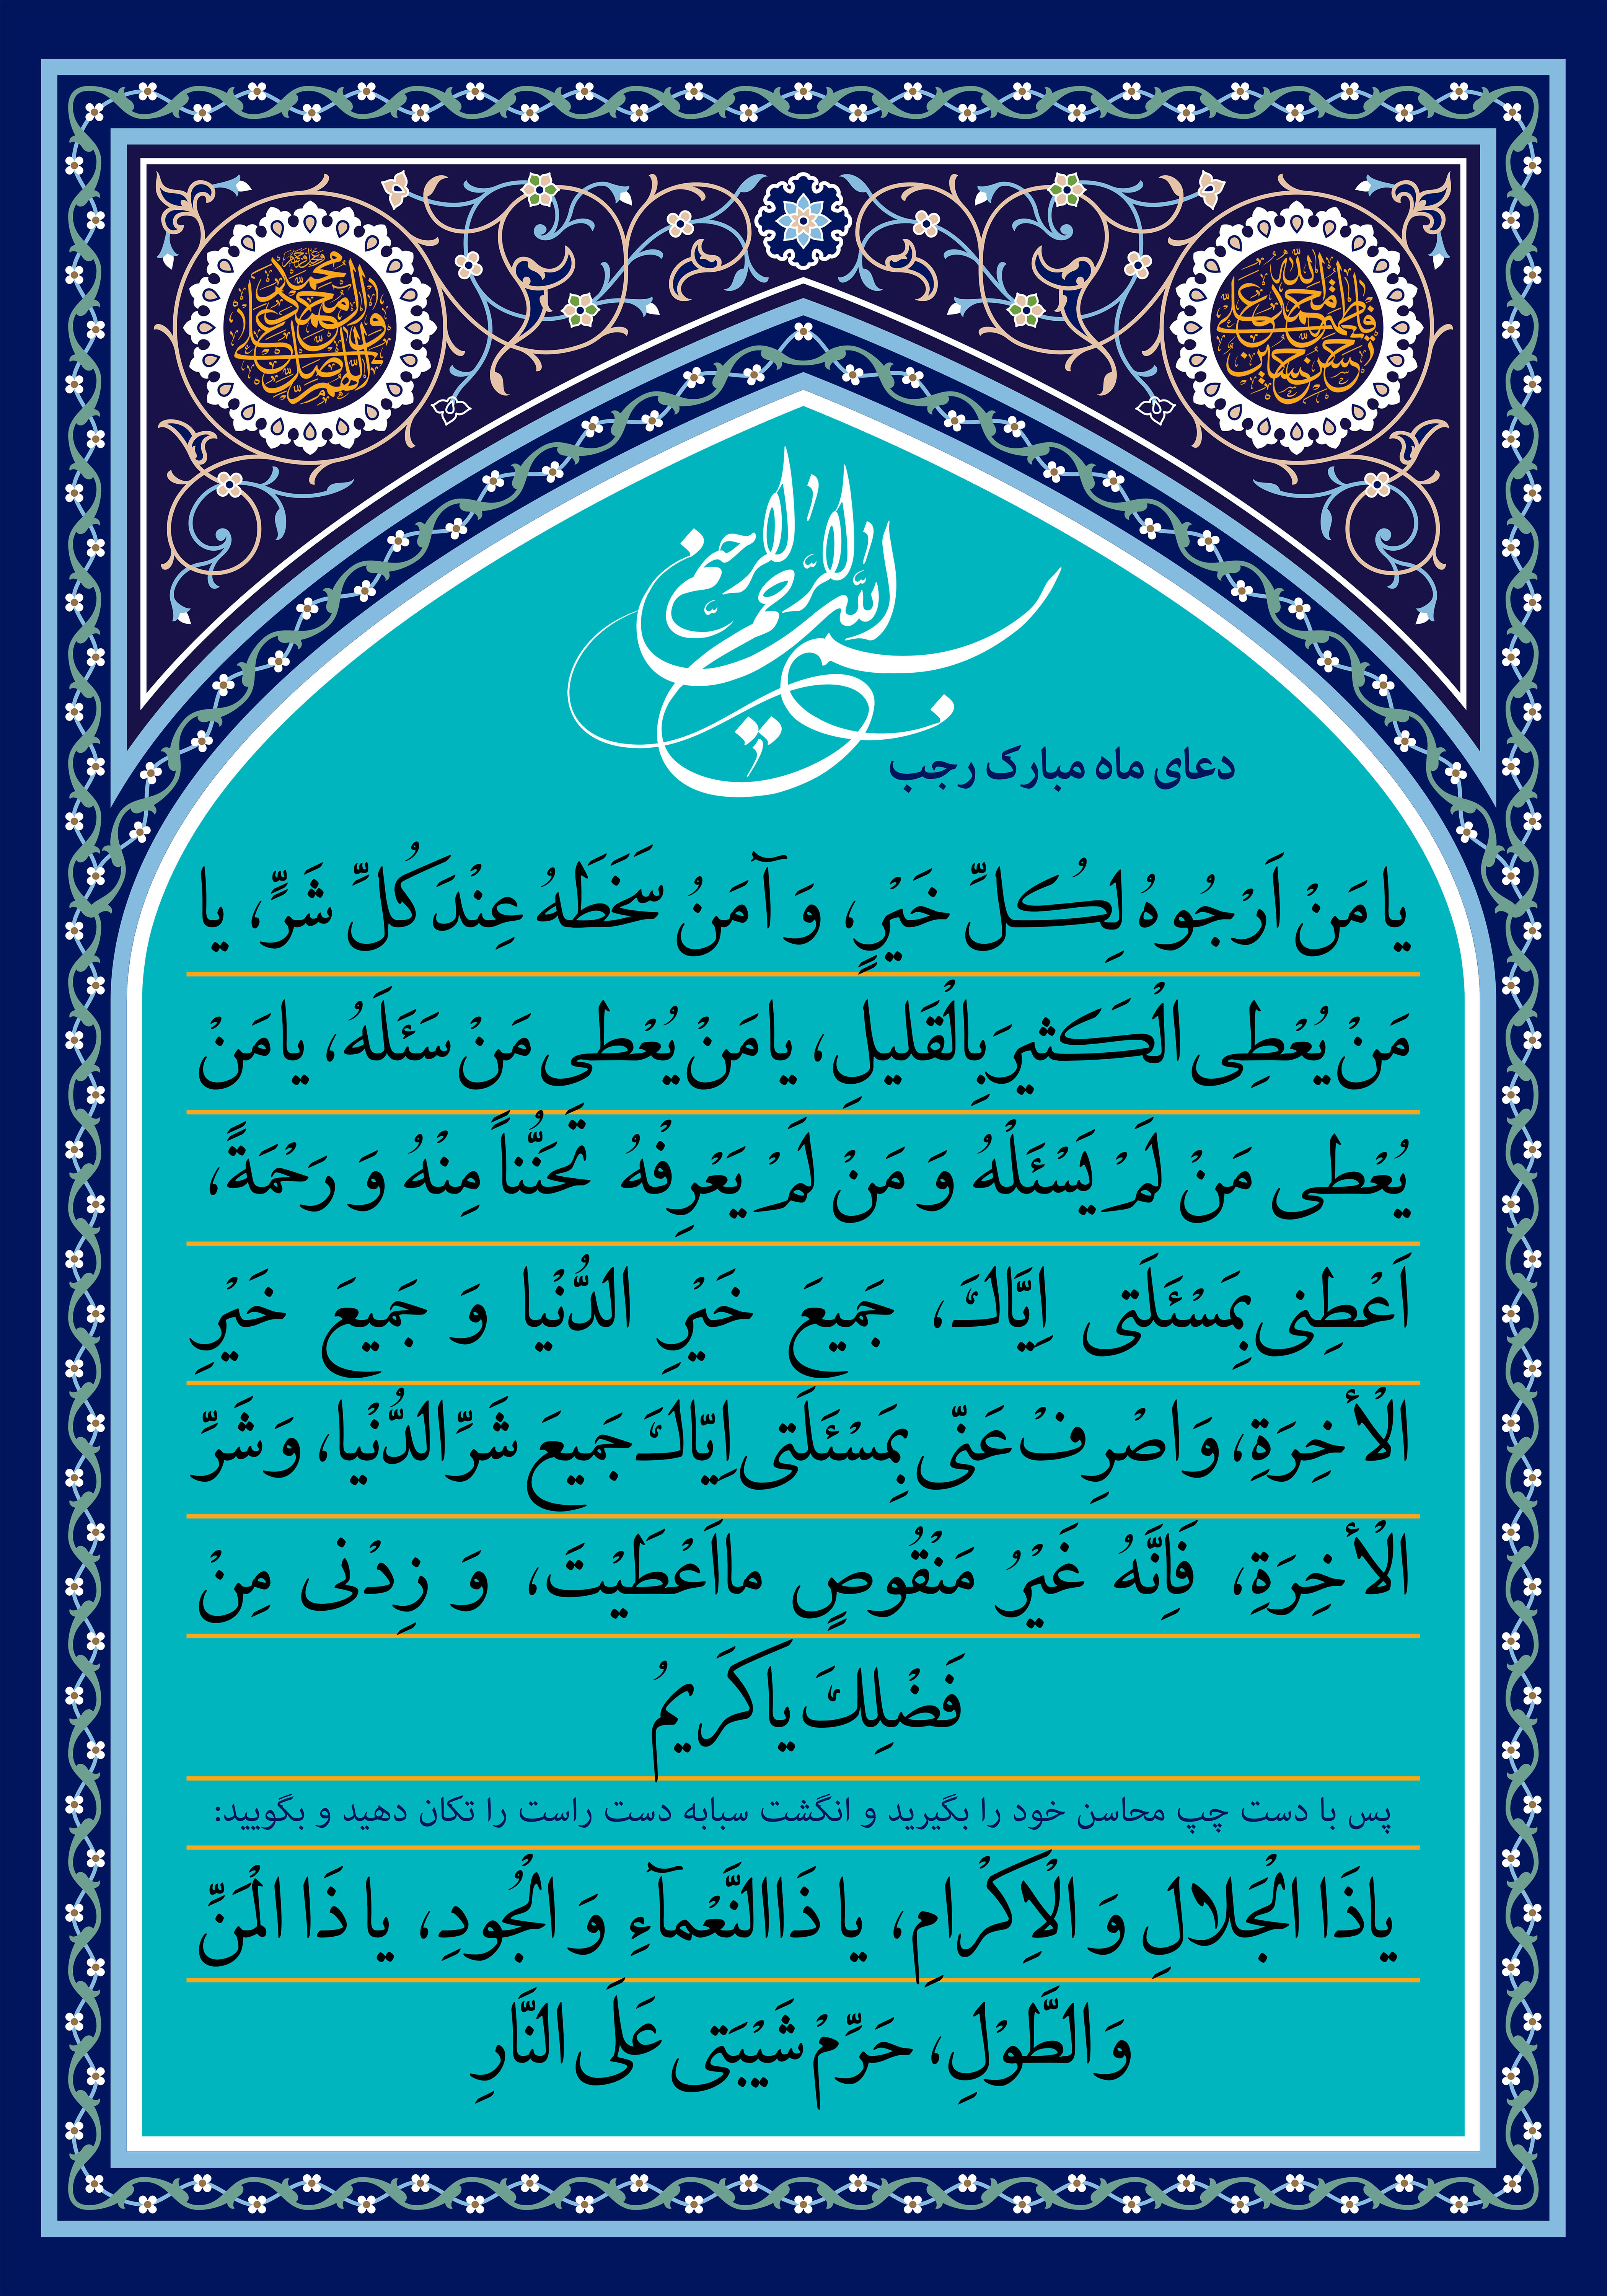 الله محمد علی فاطمه حسن حسین
اللهم صل علی محمد وآل محمد وعجل فرجهم
بسم الله الرحمن الرحیم
دعای ماه مبارک رجب
یا مَنْ اَرْجُوهُ لِكُلِّ خَیْرٍ، وَ آمَنُ سَخَطَهُ عِنْدَ كُلِّ شَرٍّ، یا
مَنْ یُعْطِی الْكَثیرَ بِالْقَلیلِ، یا مَنْ یُعْطی مَنْ سَئَلَهُ، یا مَنْ
یُعْطی مَنْ لَمْ یَسْئَلْهُ وَ مَنْ لَمْ یَعْرِفْهُ تَحَنُّناً مِنْهُ وَ رَحْمَةً،
اَعْطِنی بِمَسْئَلَتی اِیَّاكَ، جَمیعَ خَیْرِ الدُّنْیا وَ جَمیعَ خَیْرِ
الْأخِرَةِ، وَ اصْرِفْ عَنّی بِمَسْئَلَتی اِیّاكَ جَمیعَ شَرِّ الدُّنْیا، وَ شَرِّ
الْأخِرَةِ، فَاِنَّهُ غَیْرُ مَنْقُوصٍ ما اَعْطَیْتَ، وَ زِدْنی مِنْ
فَضْلِكَ یا كَریمُ
پس با دست چپ محاسن خود را بگیرید و انگشت سبابه دست راست را تکان دهید و بگویید:
یا ذَا الْجَلالِ وَ الْاِكْرامِ، یا ذَا النَّعْمآءِ وَ الْجُودِ، یا ذَا الْمَنِّ
وَ الطَّوْلِ، حَرِّمْ شَیْبَتی عَلَی النَّارِ